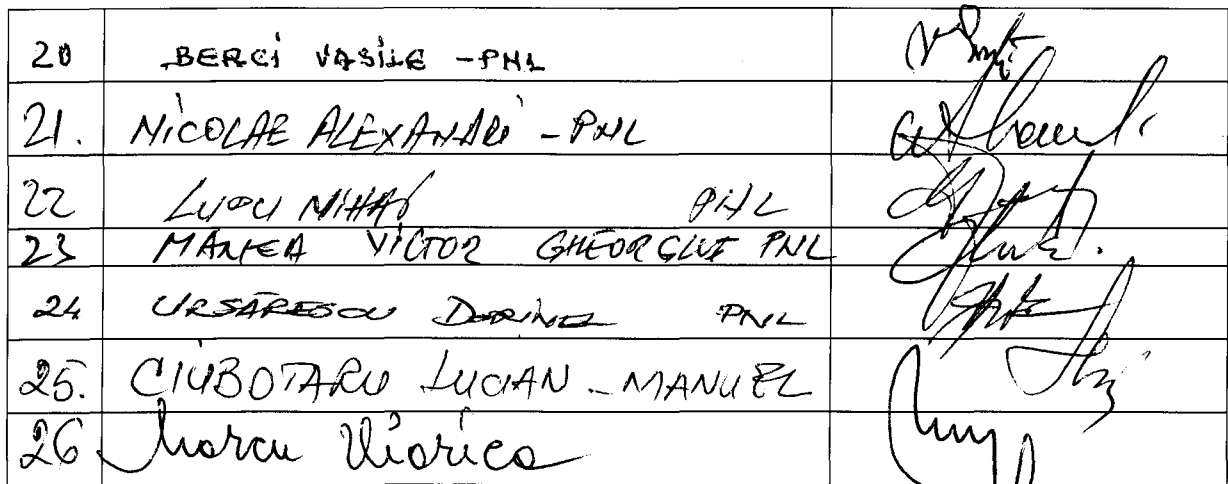 20 BERCI VASILE - PNL
21. NICOLAE ALEXANDRI - PNL
22 LUPU MIHAI PNL
23 MANEA VICTOR GHEORGHE PNL
24 URSĂRESCU DORINEL PNL
25. CIUBOTARU LUCIAN - MANUEL
26 Marcu Viorica